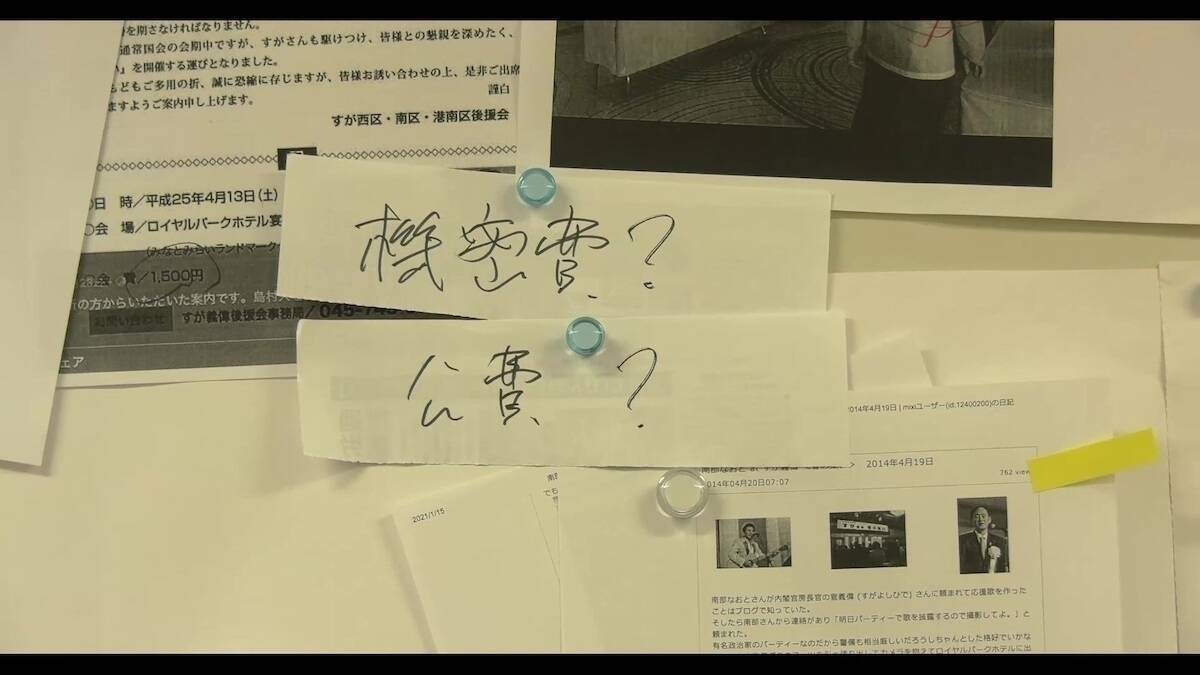 を期さなければなりません。
通常国会の会期中ですが、すがさんも駆けつけ、皆様との懇親を深めたく、
い』を開催する運びとなりました。
どもご多用の折、誠に恐縮に存じますが、皆様お誘い合わせの上、是非ご出席
ますようご案内申し上げます。
謹白
すが西区・南区・港南区後援会
日 時／平成25年4月13日(土)
会 場／ロイヤルパークホテル宴
(みなとみらいランドマーク
会 費／1,500円
の方からいただいた案内です。島村
お問い合わせ すが義偉後援会事務局／045-743
ェア
機密費?
公費?
2021/1/15
でも
2014年4月19日 | mixiユーザー(id:12400200)の日記
南部なおと
2014年4月19日
762 view
014年04月20日07:07
南部なおとさんが内閣官房長官の菅義偉 (すがよしひで) さんに頼まれて応援歌を作った
ことはブログで知っていた。
そしたら南部さんから連絡があり「明日パーティーで歌を披露するので撮影してよ。」と
頼まれた。
有名政治家のパーティーなのだから警備も相当厳しいだろうしちゃんとした格好でいかな
カメラを抱えてロイヤルパークホテルに出